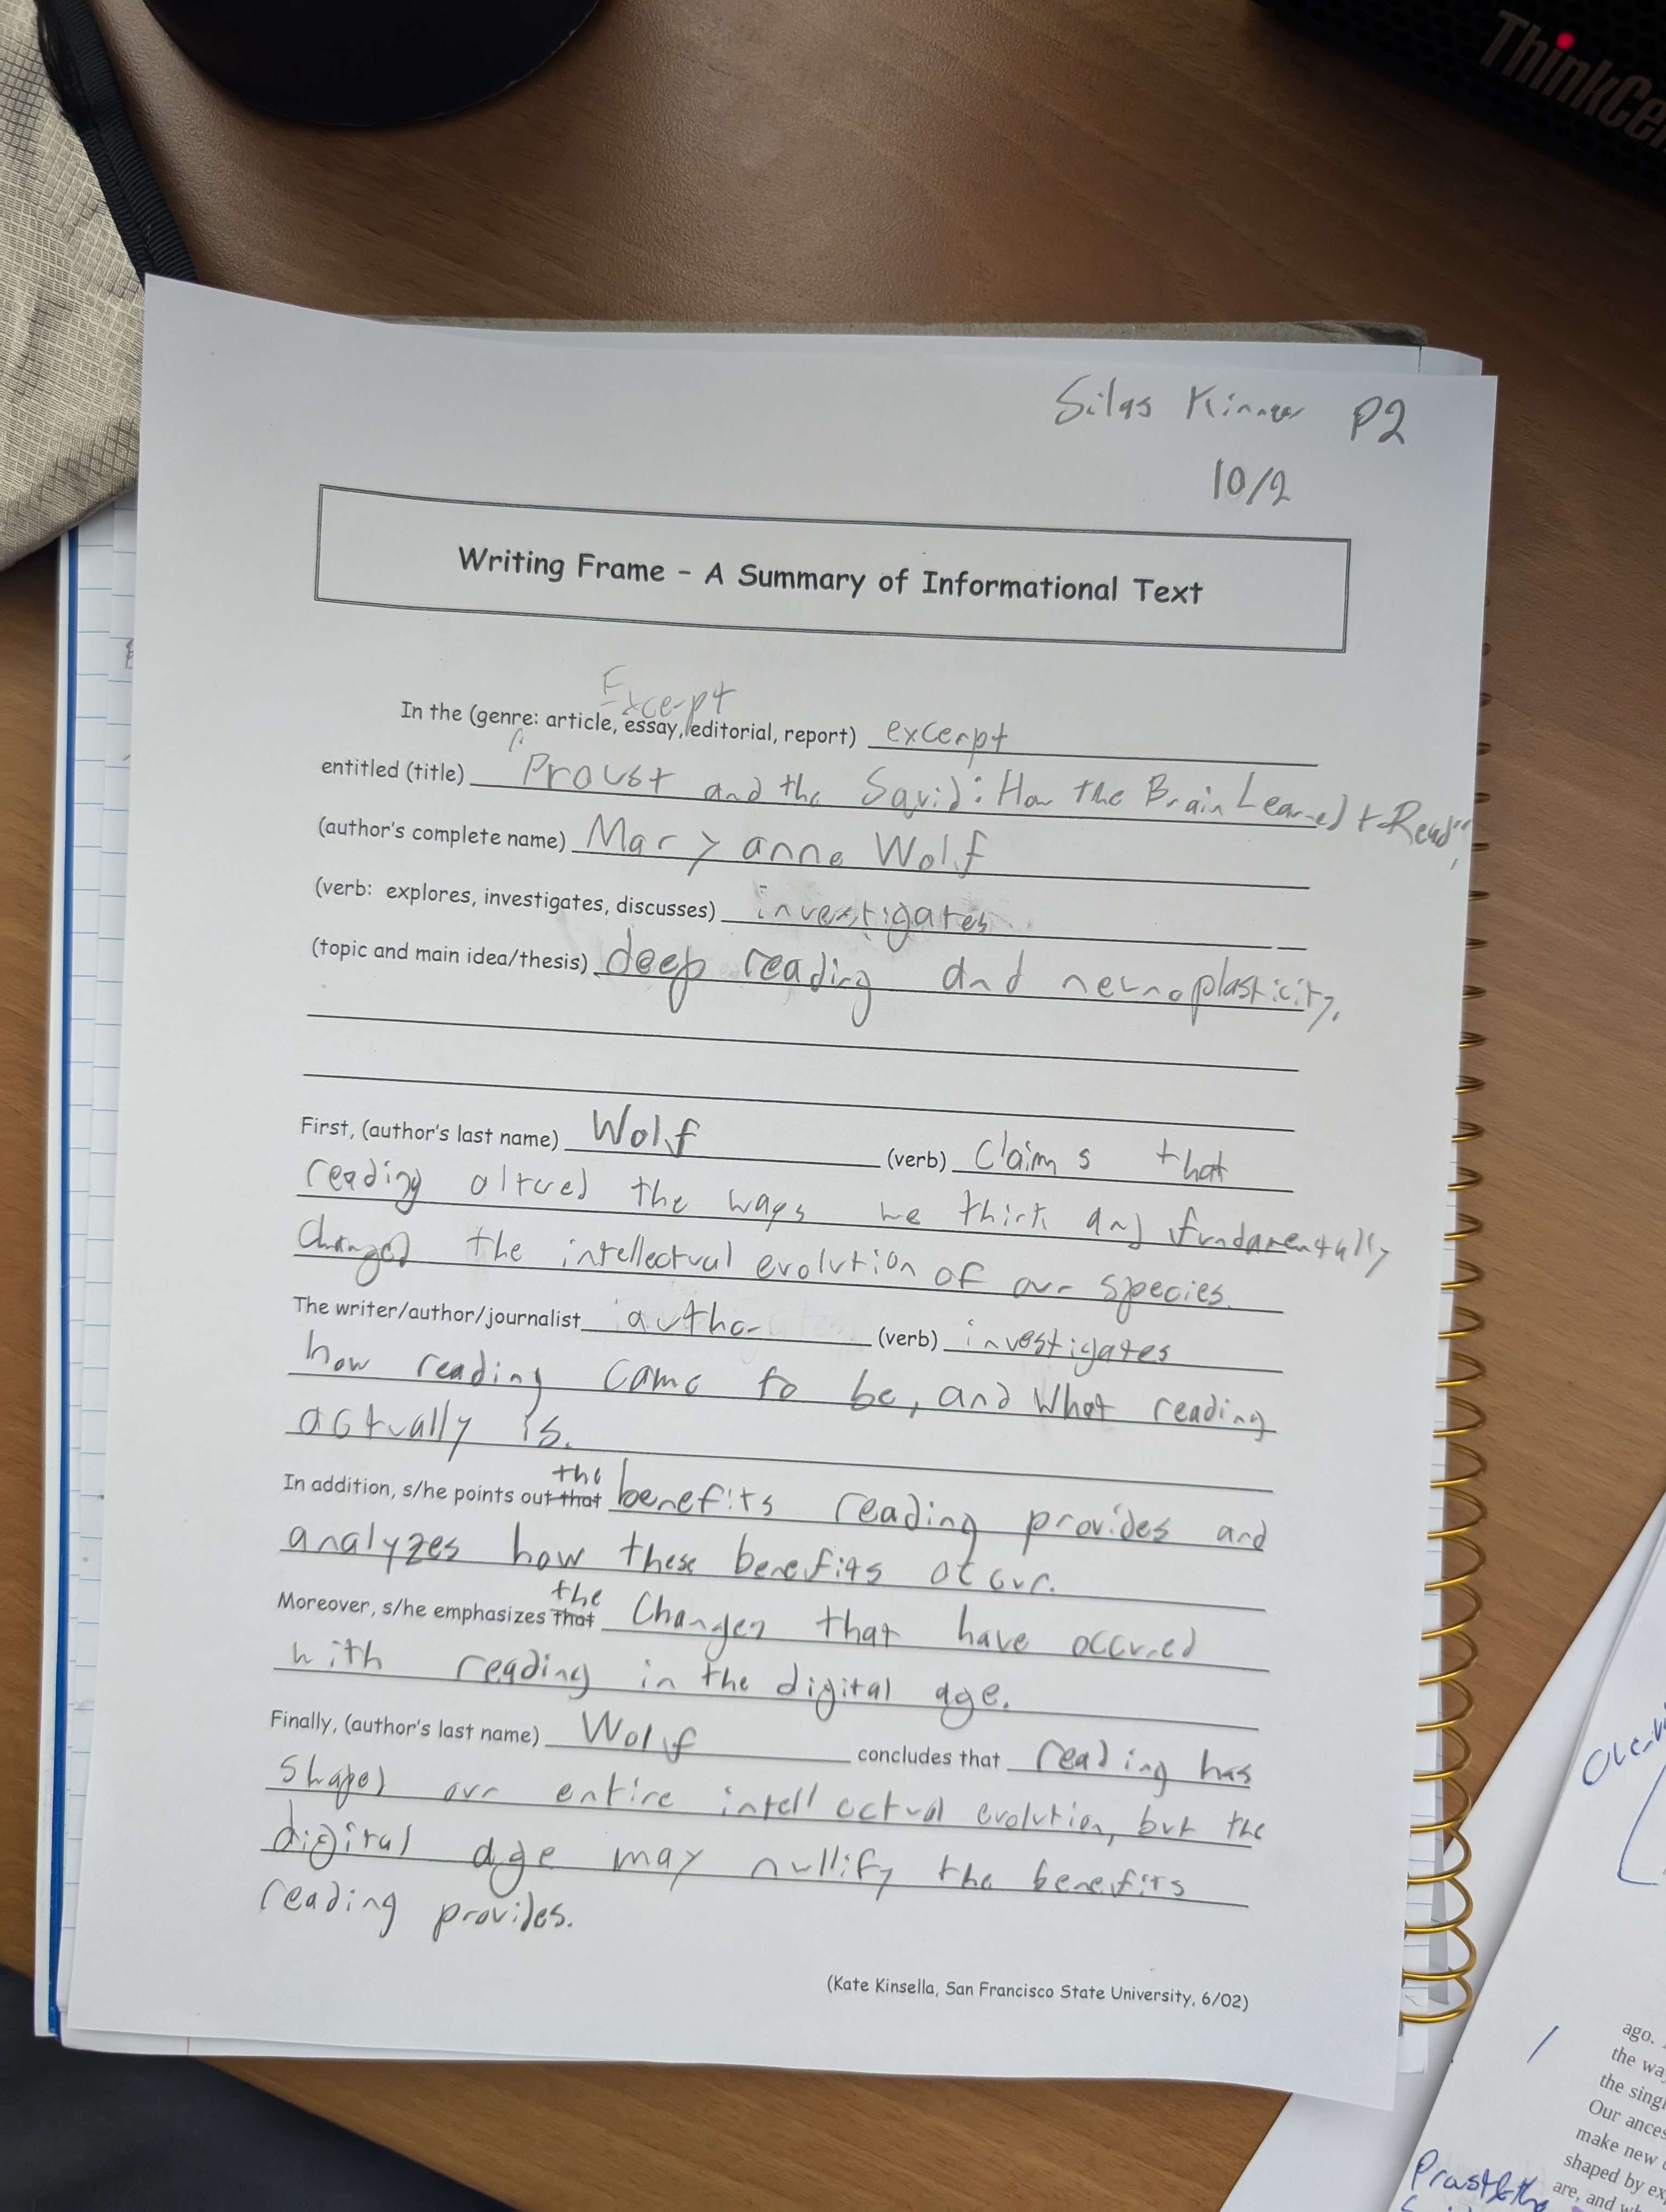 ThinkCe
Silas Kinner P2
10/2
Writing Frame – A Summary of Informational Text
Excerpt
In the (genre: article, essay, editorial, report) excerpt
entitled (title) "Proust and the Squid: How the Brain Learned to Read",
(author's complete name) Maryanne Wolf
(verb: explores, investigates, discusses) investigates
(topic and main idea/thesis) deep reading and neuroplasticity.
First, (author's last name) Wolf (verb) claims that
reading altered the ways we think and fundamentally
changed the intellectual evolution of our species.
The writer/author/journalist author (verb) investigates
how reading came to be, and what reading
actually is.
the
In addition, s/he points out that benefits reading provides and
analyzes how these benefits occur.
the
Moreover, s/he emphasizes that changes that have occurred
with reading in the digital age.
Finally, (author's last name) Wolf concludes that reading has
shaped our entire intellectual evolution, but the
digital age may nullify the benefits
reading provides.
(Kate Kinsella, San Francisco State University, 6/02)
ago.
the wa
the singl
Our ances
make new
shaped by ex
are, and wh
Proust & the